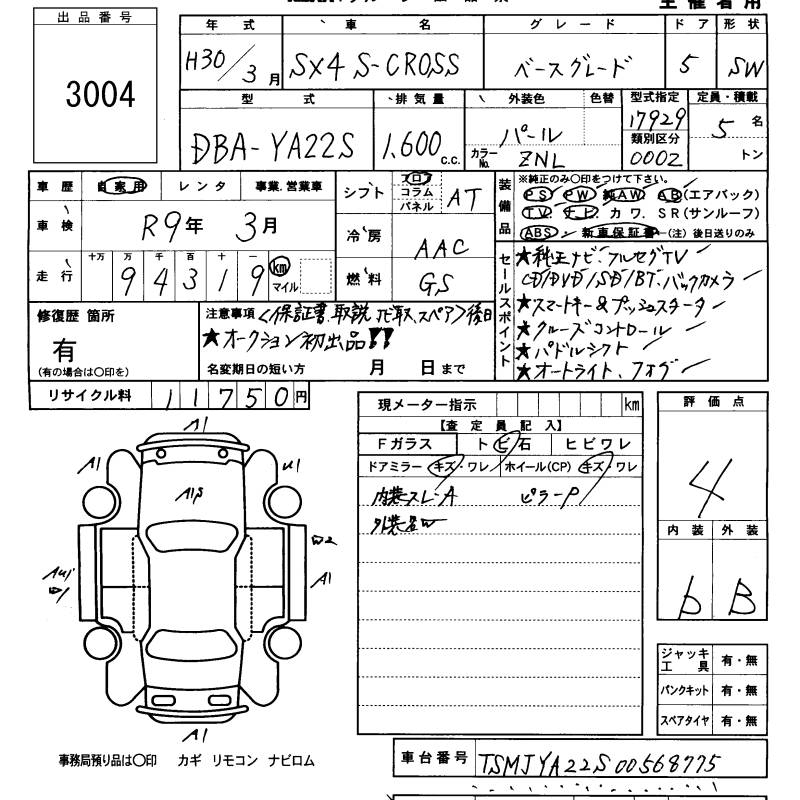 出品番号
3004
年式 車名 グレード ドア 形状
H30/3月 SX4 S-CROSS ベースグレード 5 SW
型式 排気量 外装色 色替 型式指定 定員・積載
DBA-YA22S 1,600c.c. パール 17929 5名
カラーNo. ZNL 類別区分 0002 トン
車歴 自家用 レンタ 事業.営業車
車検 R9年 3月
走行 十万 万 千 百 十 一
94319 km マイル
シフト フロア コラム パネル AT
冷房 AAC
燃料 GS
装備品
※純正のみ○印をつけて下さい。
PS PW 純AW AB(エアバック)
TV ナビ カワ SR(サンルーフ)
ABS 新車保証書 (注)後日送りのみ
セールスポイント
★純正ナビ・フルセグTV
CD/DVD/SD/BT.バックカメラ
★スマートキー&プッシュスタータ
★クルーズコントロール
★パドルシフト
★オートライト、フォグ
修復歴 箇所
有
(有の場合は○印を)
注意事項 <保証書、取説、ナビ取、スペア>後日
★オークション初出品!!
名変期日の短い方 月 日まで
リサイクル料 11750円
現メーター指示 km
【査定員記入】
Fガラス トビ石 ヒビワレ
ドアミラー キズ・ワレ ホイール(CP) キズ・ワレ
内装スレ・A ピラーP
外装名W
評価点
4
内装 外装
b B
A1
A1
U1
A1β
W2
A1
AU1
A1
ジャッキ工具 有・無
パンクキット 有・無
スペアタイヤ 有・無
事務局預り品は○印 カギ リモコン ナビロム
車台番号 TSMJYA22S00568775